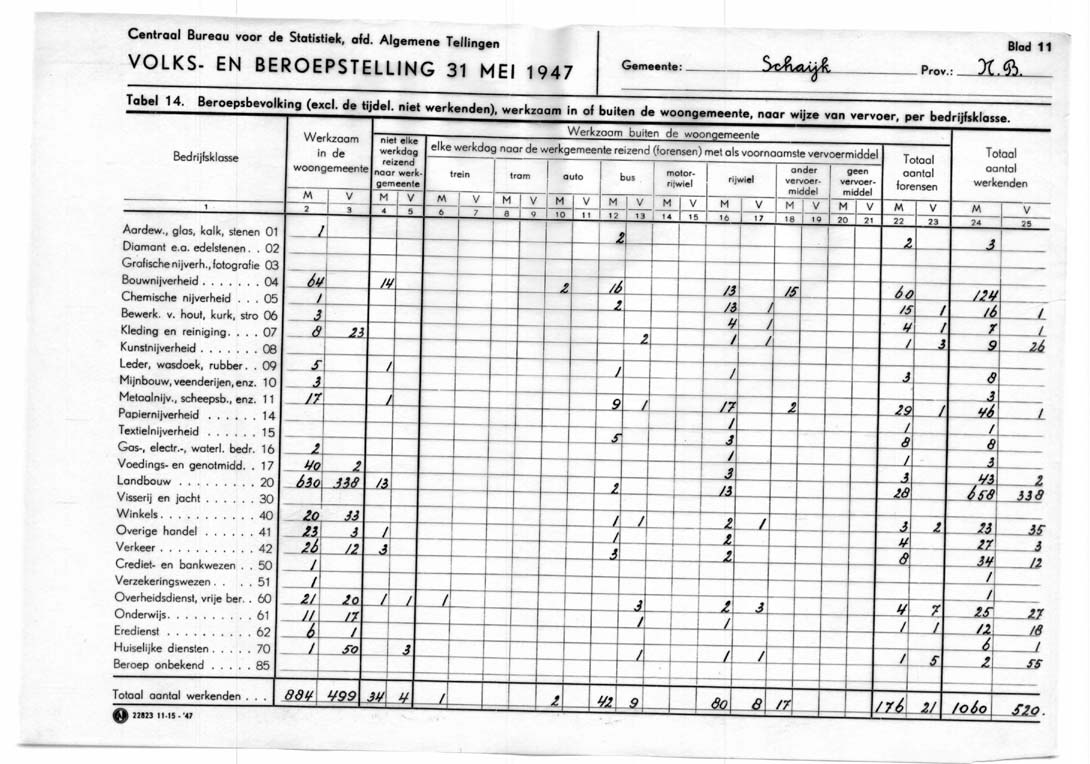 Centraal Bureau voor de Statistiek, afd. Algemene Tellingen
Blad 11
VOLKS- EN BEROEPSTELLING 31 MEI 1947
Gemeente: Schaijk Prov.: N.B.
Tabel 14. Beroepsbevolking (excl. de tijdel. niet werkenden), werkzaam in of buiten de woongemeente, naar wijze van vervoer, per bedrijfsklasse.
Bedrijfsklasse
Werkzaam in de woongemeente
Werkzaam buiten de woongemeente
niet elke werkdag reizend naar werkgemeente
elke werkdag naar de werkgemeente reizend (forensen) met als voornaamste vervoermiddel
trein tram auto bus motorrijwiel rijwiel ander vervoermiddel geen vervoermiddel
Totaal aantal forensen
Totaal aantal werkenden
M V M V M V M V M V M V M V M V M V M V M V M V
1 2 3 4 5 6 7 8 9 10 11 12 13 14 15 16 17 18 19 20 21 22 23 24 25
Aardew., glas, kalk, stenen 01 1 2 2 3
Diamant e.a. edelstenen . . 02
Grafische nijverh., fotografie 03
Bouwnijverheid . . . . . . . 04 64 14 2 16 13 15 60 124
Chemische nijverheid . . . 05 1 2 13 1 15 1 16 1
Bewerk. v. hout, kurk, stro 06 3 4 1 4 1 7 1
Kleding en reiniging . . . . 07 8 23 2 1 1 1 3 9 26
Kunstnijverheid . . . . . . . 08
Leder, wasdoek, rubber . . 09 5 1 1 1 3 8
Mijnbouw, veenderijen, enz. 10 3 3
Metaalnijv., scheepsb., enz. 11 17 1 9 1 17 2 29 1 46 1
Papiernijverheid . . . . . . 14 1 1 1
Textielnijverheid . . . . . . 15 5 3 8 8
Gas-, electr.-, waterl. bedr. 16 2 1 1 3
Voedings- en genotmidd. . 17 40 2 3 3 43 2
Landbouw . . . . . . . . . . 20 630 338 13 2 13 28 658 338
Visserij en jacht . . . . . . 30
Winkels . . . . . . . . . . . 40 20 33 1 1 2 1 3 2 23 35
Overige handel . . . . . . 41 23 3 1 1 2 4 27 3
Verkeer . . . . . . . . . . . 42 26 12 3 3 2 8 34 12
Crediet- en bankwezen . . 50 1 1
Verzekeringswezen . . . . 51 1 1
Overheidsdienst, vrije ber. . 60 21 20 1 1 1 3 2 3 4 7 25 27
Onderwijs . . . . . . . . . . 61 11 17 1 1 1 1 12 18
Eredienst . . . . . . . . . . 62 6 1 6 1
Huiselijke diensten . . . . . 70 1 50 3 1 1 1 1 5 2 55
Beroep onbekend . . . . . 85
Totaal aantal werkenden . . . 884 499 34 4 1 2 42 9 80 8 17 176 21 1060 520.
22823 11-15-'47